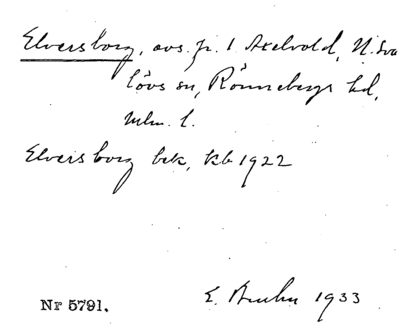 Elversborg, avs. fr. 1 Axelvold, N. Sva
lövs sn, Rönnebergs hd,
Mlm. l.
Elversborg bek, kb 1922
Nr 5791.
E. Bruhn 1933